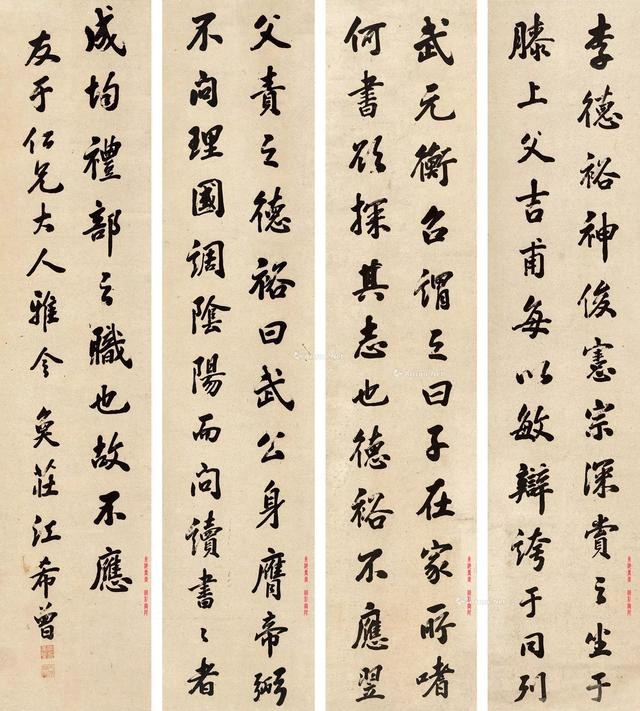 李德裕神俊憲宗深賞之坐于
膝上父吉甫每以敏辯誇于同列
武元衡召謂之曰子在家所嗜
何書欲探其志也德裕不應翌
父責之德裕曰武公身膺帝弼
不問理國調陰陽而問讀書〻者
成均禮部之職也故不應
友于仁兄大人雅令 奐莊江希曾